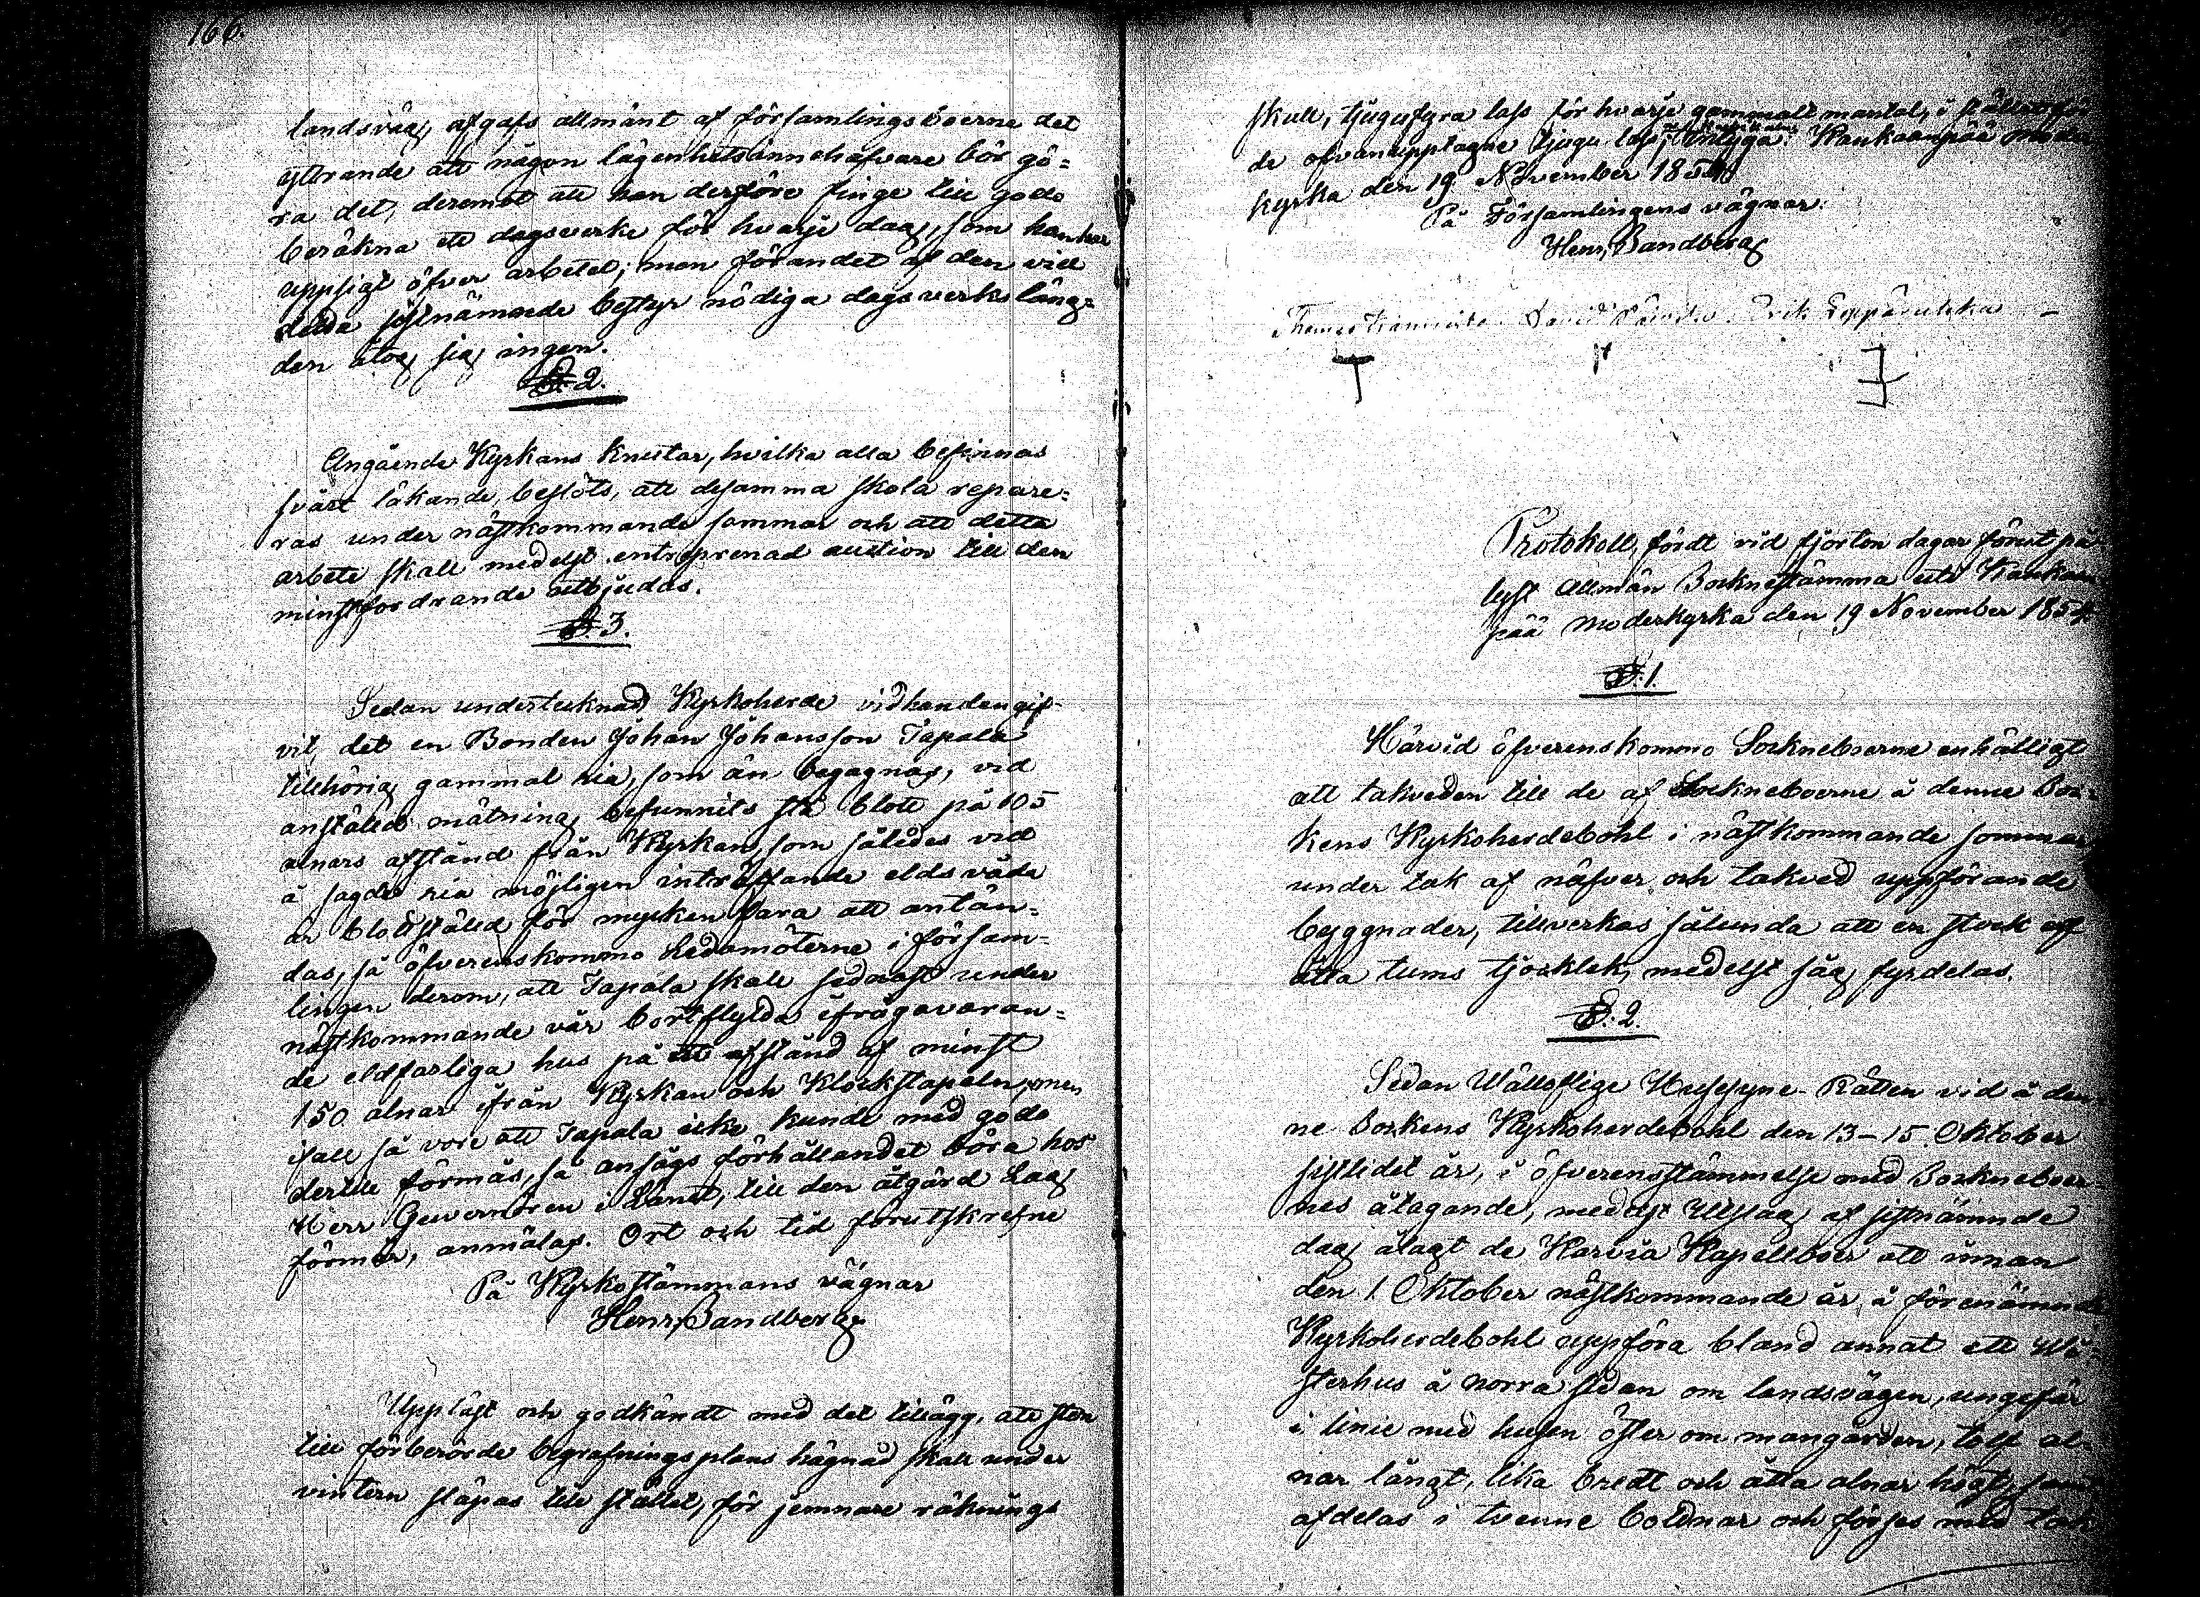 166.
landsväg, afgafs allmänt af församlingsboerne det
yttrande att någon lägenhetsinnehafvare bör gö=
ra det, deremot att han derföre finge till godo
beräkna ett dagsverke för hvarje dag, som han har
uppsigt öfver arbetet; men förandet af den vid
detta sistnämnde bestyr nödiga dagsverksläng=
den åtog sig ingen.
§. 2.
Angående Kyrkans knutar, hvilka alla befinnas
svårt läkande, beslöts, att desamma skola repare=
ras under nästkommande sommar och att detta
arbete skall medelst entreprenad auction till den
minstfordrande utbjudas.
§. 3.
Sedan undertecknad Kyrkoherde vidhandengif-
vit, det en Bonden Johan Johansson Tapala
tillhörig gammal ria, som än begagnas, vid
anställd mätning befunnits stå blott på 105
alnars afstånd från Kyrkan, som således vid
å sagde ria möjligen inträffande eldsvåda
är blottställd för mycken fara att antän=
das, så öfverenskommo Ledamöterne i försam=
lingen derom, att Tapala skall sednast under
nästkommande vår bortflytta ifrågavaran=
de eldfarliga hus på ett afstånd af minst
150 alnar ifrån Kyrkan och Klockstapeln, men
ifall så vore att Tapala icke kunde med godo
dertill förmås, så ansågs förhållandet böra hos
Herr Guvernören i Länet, till den åtgärd Lag
förmår, anmälas. Ort och tid förutskrefne
På Kyrkostämmans vägnar
Henr. Sandberg.
Uppläst och godkändt med det tillägg, att sten
till förberörde begrafningsplans hägnad skall under
vintern släpas till stället, för jemnare räknings
skull, tjugufyra lass för hvarje gammalt mantal, i stället för
de ofvanupptagne tjugu lass, Kankaanpää moder
kyrka den 19 November 1854.
På Församlingens vägnar:
Henr. Sandberg
Thomas David Erik
Protokoll, fördt vid fjorton dagar förut på
lyst Allmän Sockneståmma uti Kankaan
pää moderkyrka den 19 November 1854
§. 1.
Härvid öfverenskommo Sockneboerne enhälligt
att takveden till de af Sockneboerne å denne Soc=
kens Kyrkoherdebohl i nästkommande sommar
under tak af näfver och takved uppförande
byggnader, tillverkas sålunda att en stock af
åtta tums tjocklek, medelst såg fyrdelas.
§. 2.
Sedan Wällofliga Husesyns-Rätten vid å den
ne Sockens Kyrkoherdebohl den 13-15 Oktober
sistlidet år, i öfverensstämmelse med Socknebor
nes åtagande, medelst Utslag af sistnämnde
dag ålagt de Karvia Kapellboer att innan
den 1 Oktober nästkommande år å förenämnde
Kyrkoherdebohl uppföra bland annat ett Wi=
sterhus å norra sidan om landsvägen, ungefär
i linie med husen öster om mangården, tolf al=
nar långt, lika bredt och åtta alnar högt, som
afdelas i tvenne bottnar och förses med tak